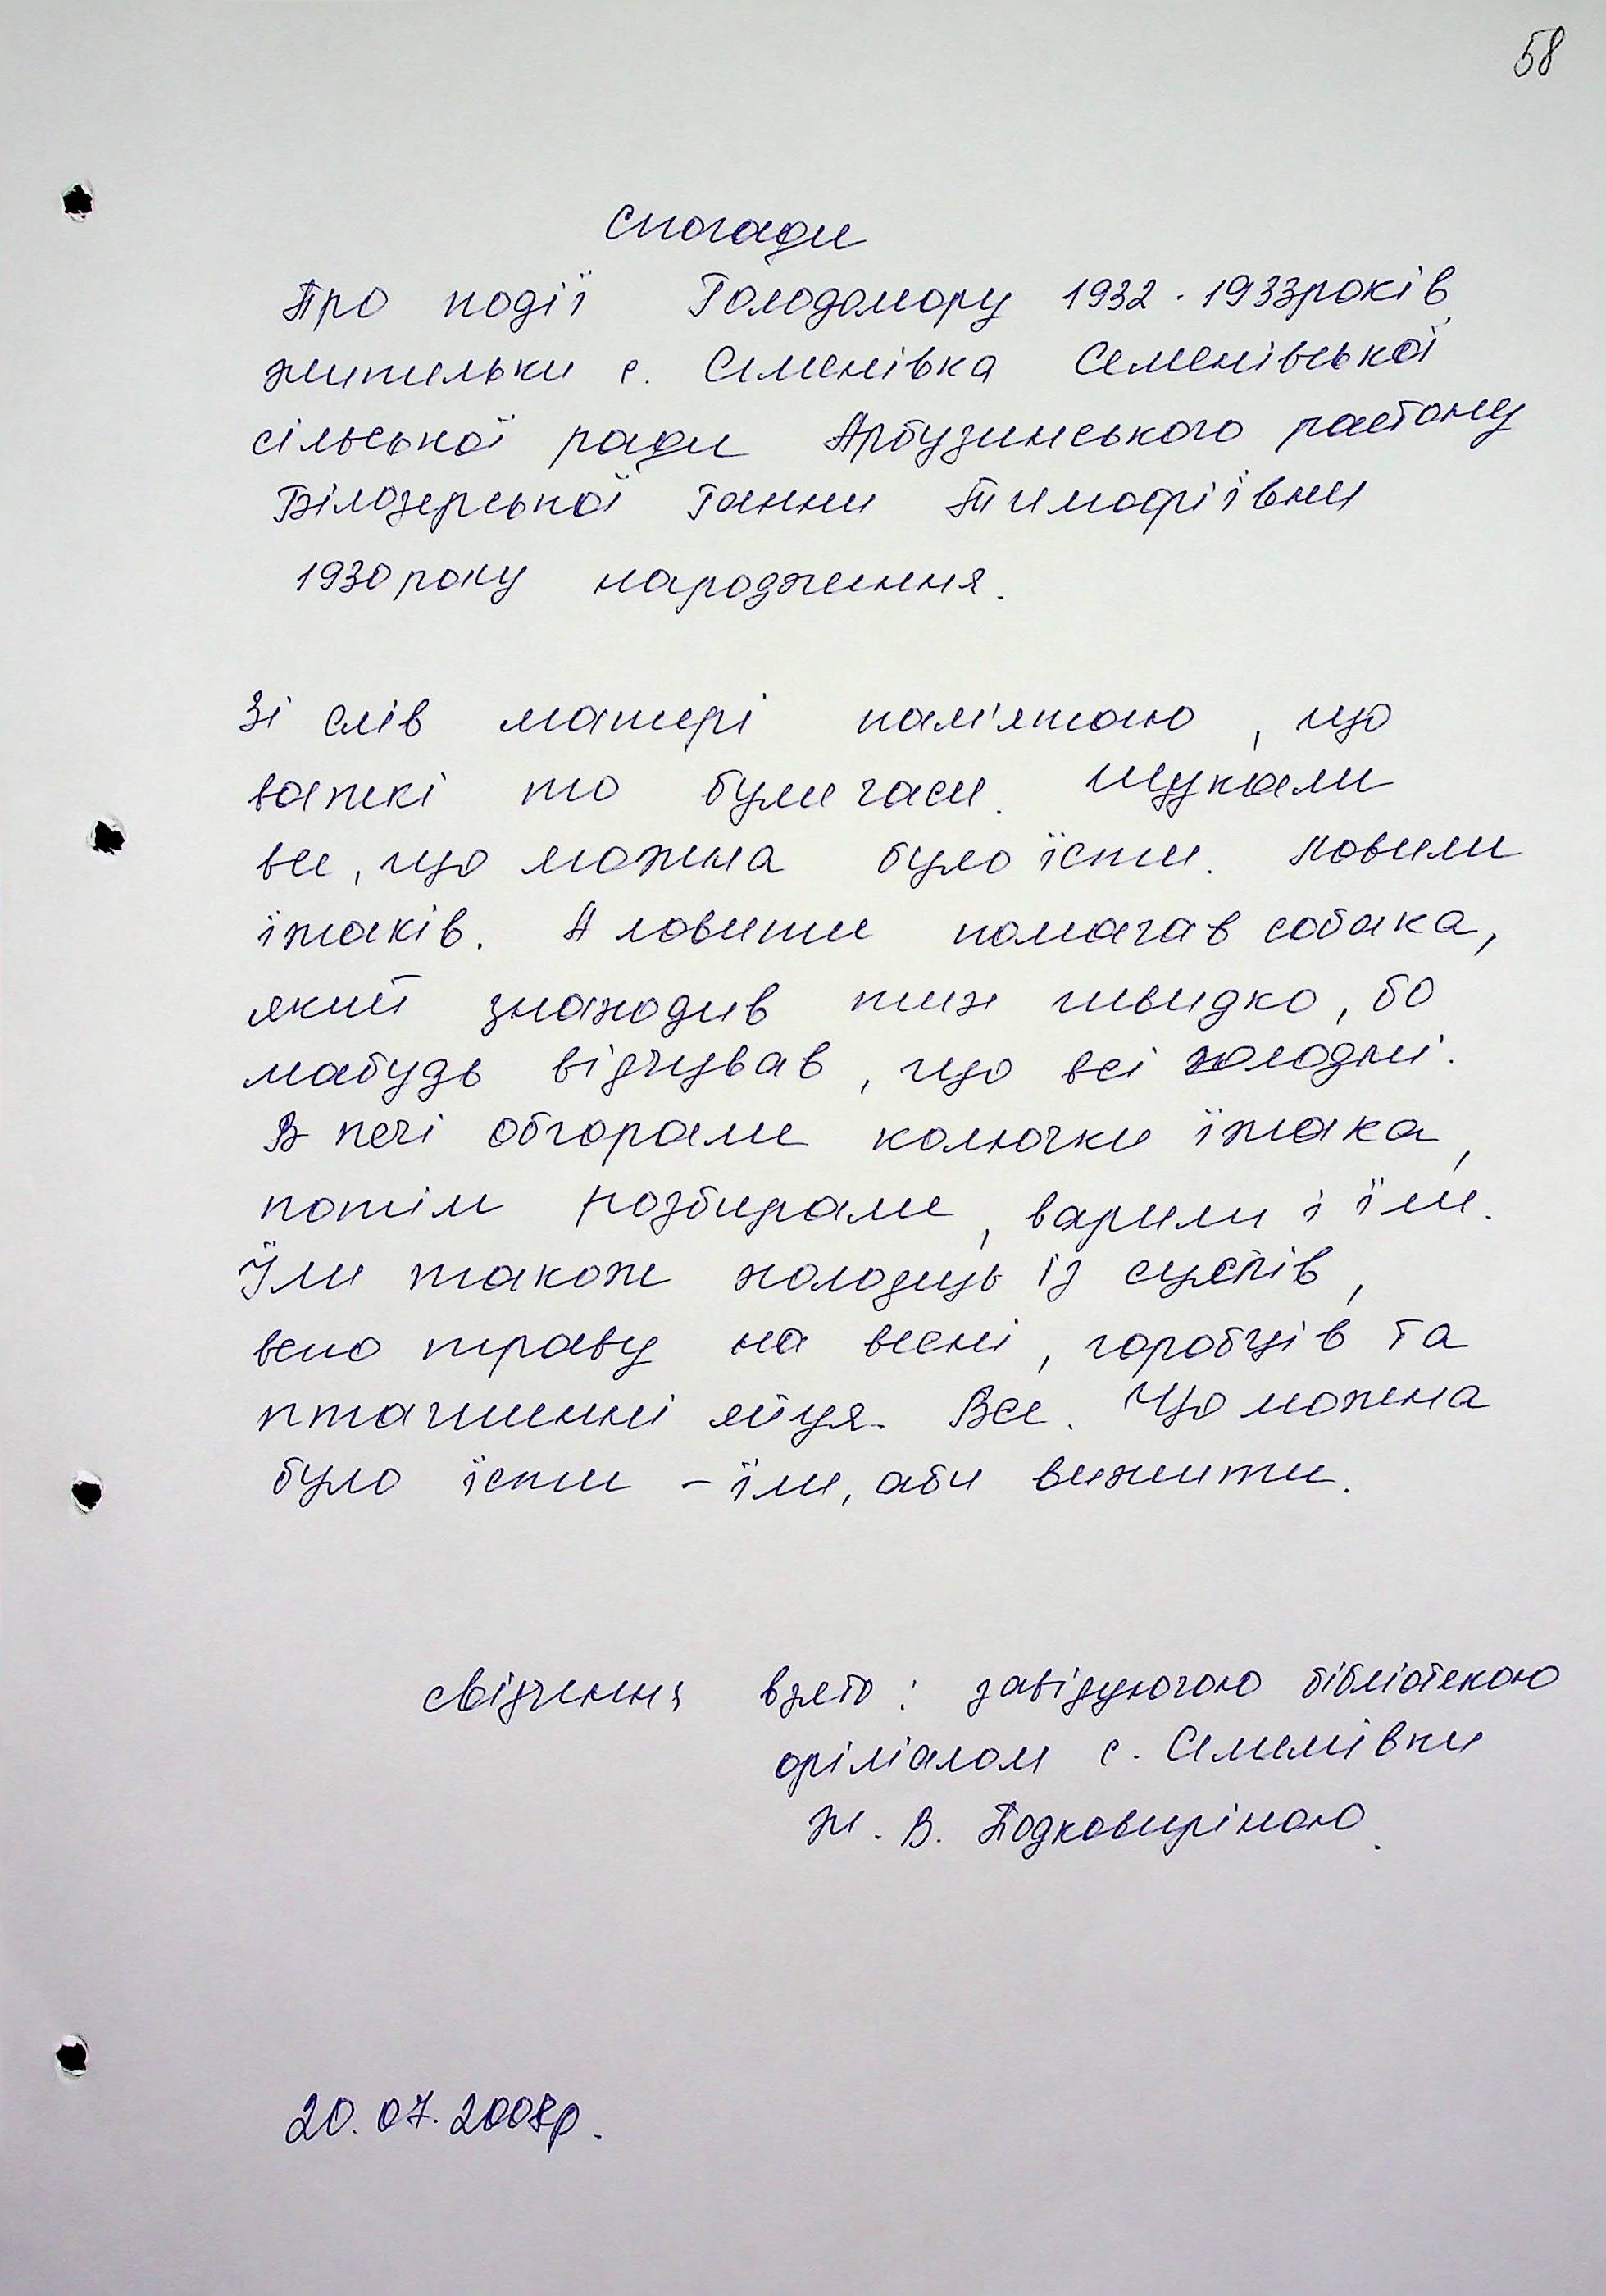 58
Спогади
Про події Голодомору 1932-1933років
жительки с. Семенівка Семенівської
сільської ради Арбузинського району
Білозерської Ганни Тимофіївни
1930року народження.
Зі слів матері пам'ятаю, що
важкі то були часи. Шукали
все, що можна було їсти. Ловили
їжаків. А ловити помагав собака,
який знаходив тих швидко, бо
мабудь відчував, що всі голодні.
В печі обгорали колючки їжака,
потім розбирали, варили і їли.
Їли також холодець із суслів,
всю траву на весні, горобців та
пташинні яйця. Все. Що можна
було їсти – їли, аби вижити.
свідчення взято: завідуючою бібліотекою
філіалом с. Семенівки
Ж. В. Подковиріною.
20.07.2008р.